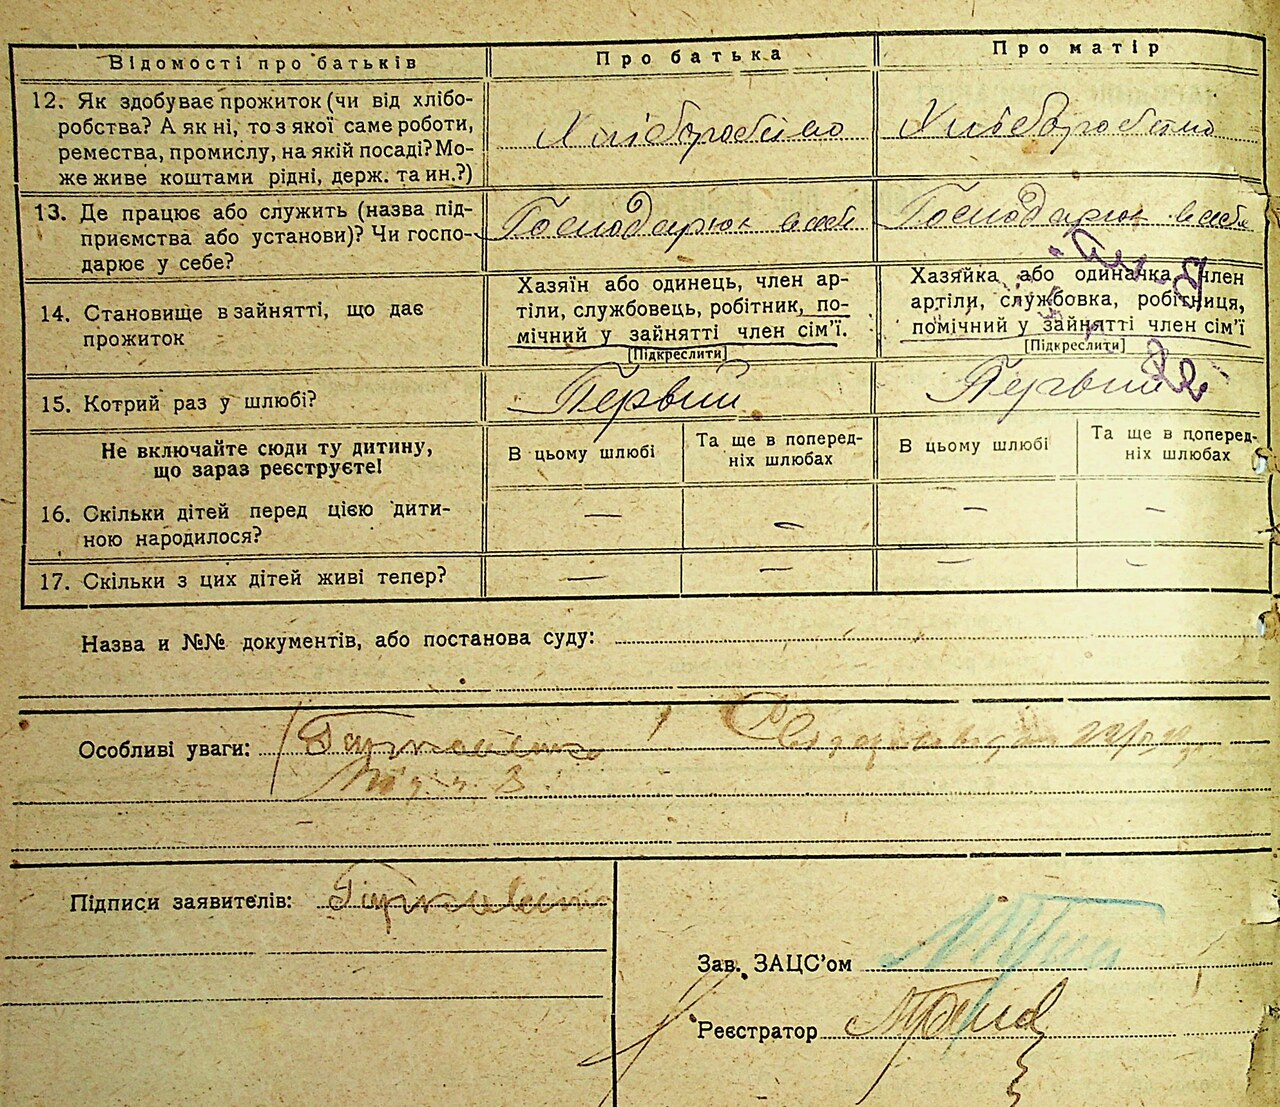 Відомості про батьків
Про батька
Про матір
12. Як здобуває прожиток (чи від хлібо-
робства? А як ні, то з якої саме роботи,
ремества, промислу, на якій посаді? Мо-
же живе коштами рідні, держ. та ин.?)
Хліборобство
Хліборобство
13. Де працює або служить (назва під-
приємства або установи)? Чи госпо-
дарює у себе?
Господарюк в себе
Господарюк в себе
14. Становище в зайнятті, що дає
прожиток
Хазяїн або одинець, член ар-
тіли, службовець, робітник, по-
мічний у зайнятті член сім’ї.
[Підкреслити]
Хазяйка або одиначка, член
артіли, службовка, робітниця,
помічний у зайнятті член сім’ї
[Підкреслити]
15. Котрий раз у шлюбі?
Первий
Первий
Не включайте сюди ту дитину,
що зараз реєструєте!
В цьому шлюбі
Та ще в поперед-
ніх шлюбах
В цьому шлюбі
Та ще в поперед-
ніх шлюбах
16. Скільки дітей перед цією дити-
ною народилося?
—
—
—
—
17. Скільки з цих дітей живі тепер?
—
—
—
—
Назва и №№ документів, або постанова суду:
Особливі уваги:
Підписи заявителів:
Зав. ЗАЦС’ом
Реєстратор